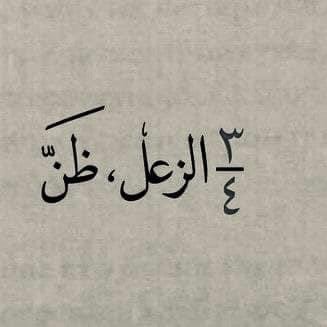 ٣/٤ الزعل، ظنّ